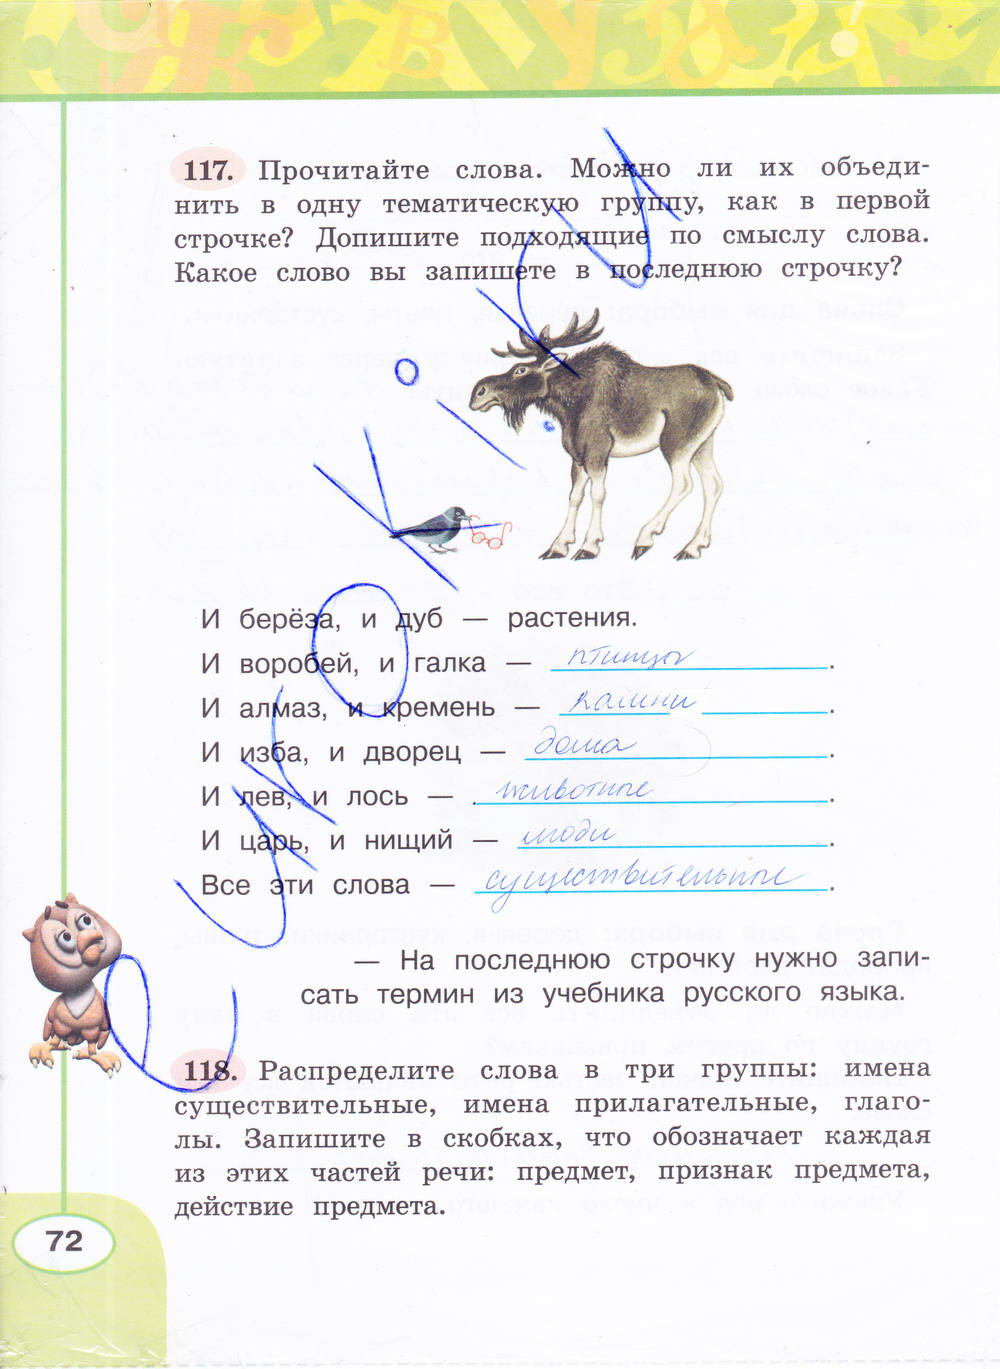 117. Прочитайте слова. Можно ли их объеди-
нить в одну тематическую группу, как в первой
строчке? Допишите подходящие по смыслу слова.
Какое слово вы запишете в последнюю строчку?
И берёза, и дуб — растения.
И воробей, и галка — птицы.
И алмаз, и кремень — камни.
И изба, и дворец — дома.
И лев, и лось — животные.
И царь, и нищий — люди.
Все эти слова — существительные.
— На последнюю строчку нужно запи-
сать термин из учебника русского языка.
118. Распределите слова в три группы: имена
существительные, имена прилагательные, глаго-
лы. Запишите в скобках, что обозначает каждая
из этих частей речи: предмет, признак предмета,
действие предмета.
72